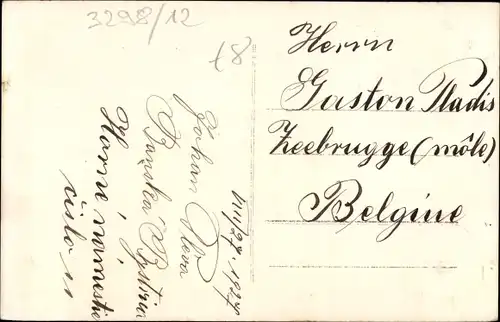 3298/12
18
Herrn
Gaston Pladis
Zeebrugge (môle)
Belgine
VIII/27. 1927
Johan Pleva
Banská Bystrica
Horné námestie
číslo